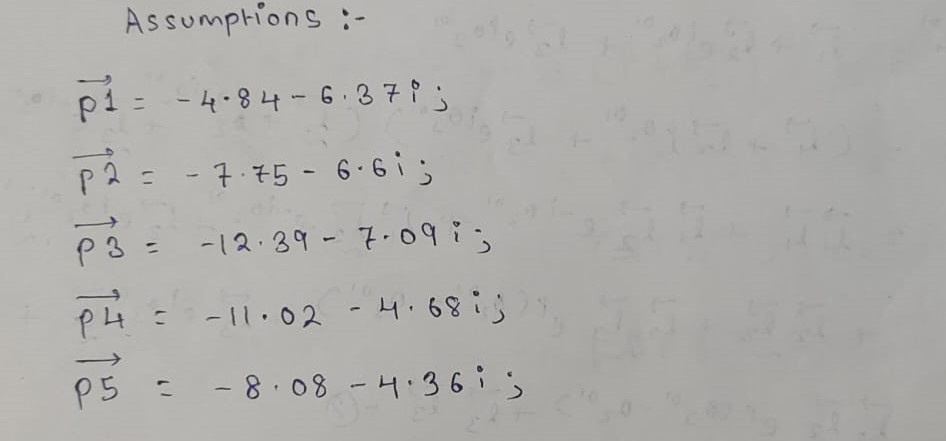 Assumptions :-
p1 = -4.84 - 6.37i ;
p2 = -7.75 - 6.6i ;
p3 = -12.39 - 7.09i ;
p4 = -11.02 - 4.68i ;
p5 = -8.08 - 4.36i ;